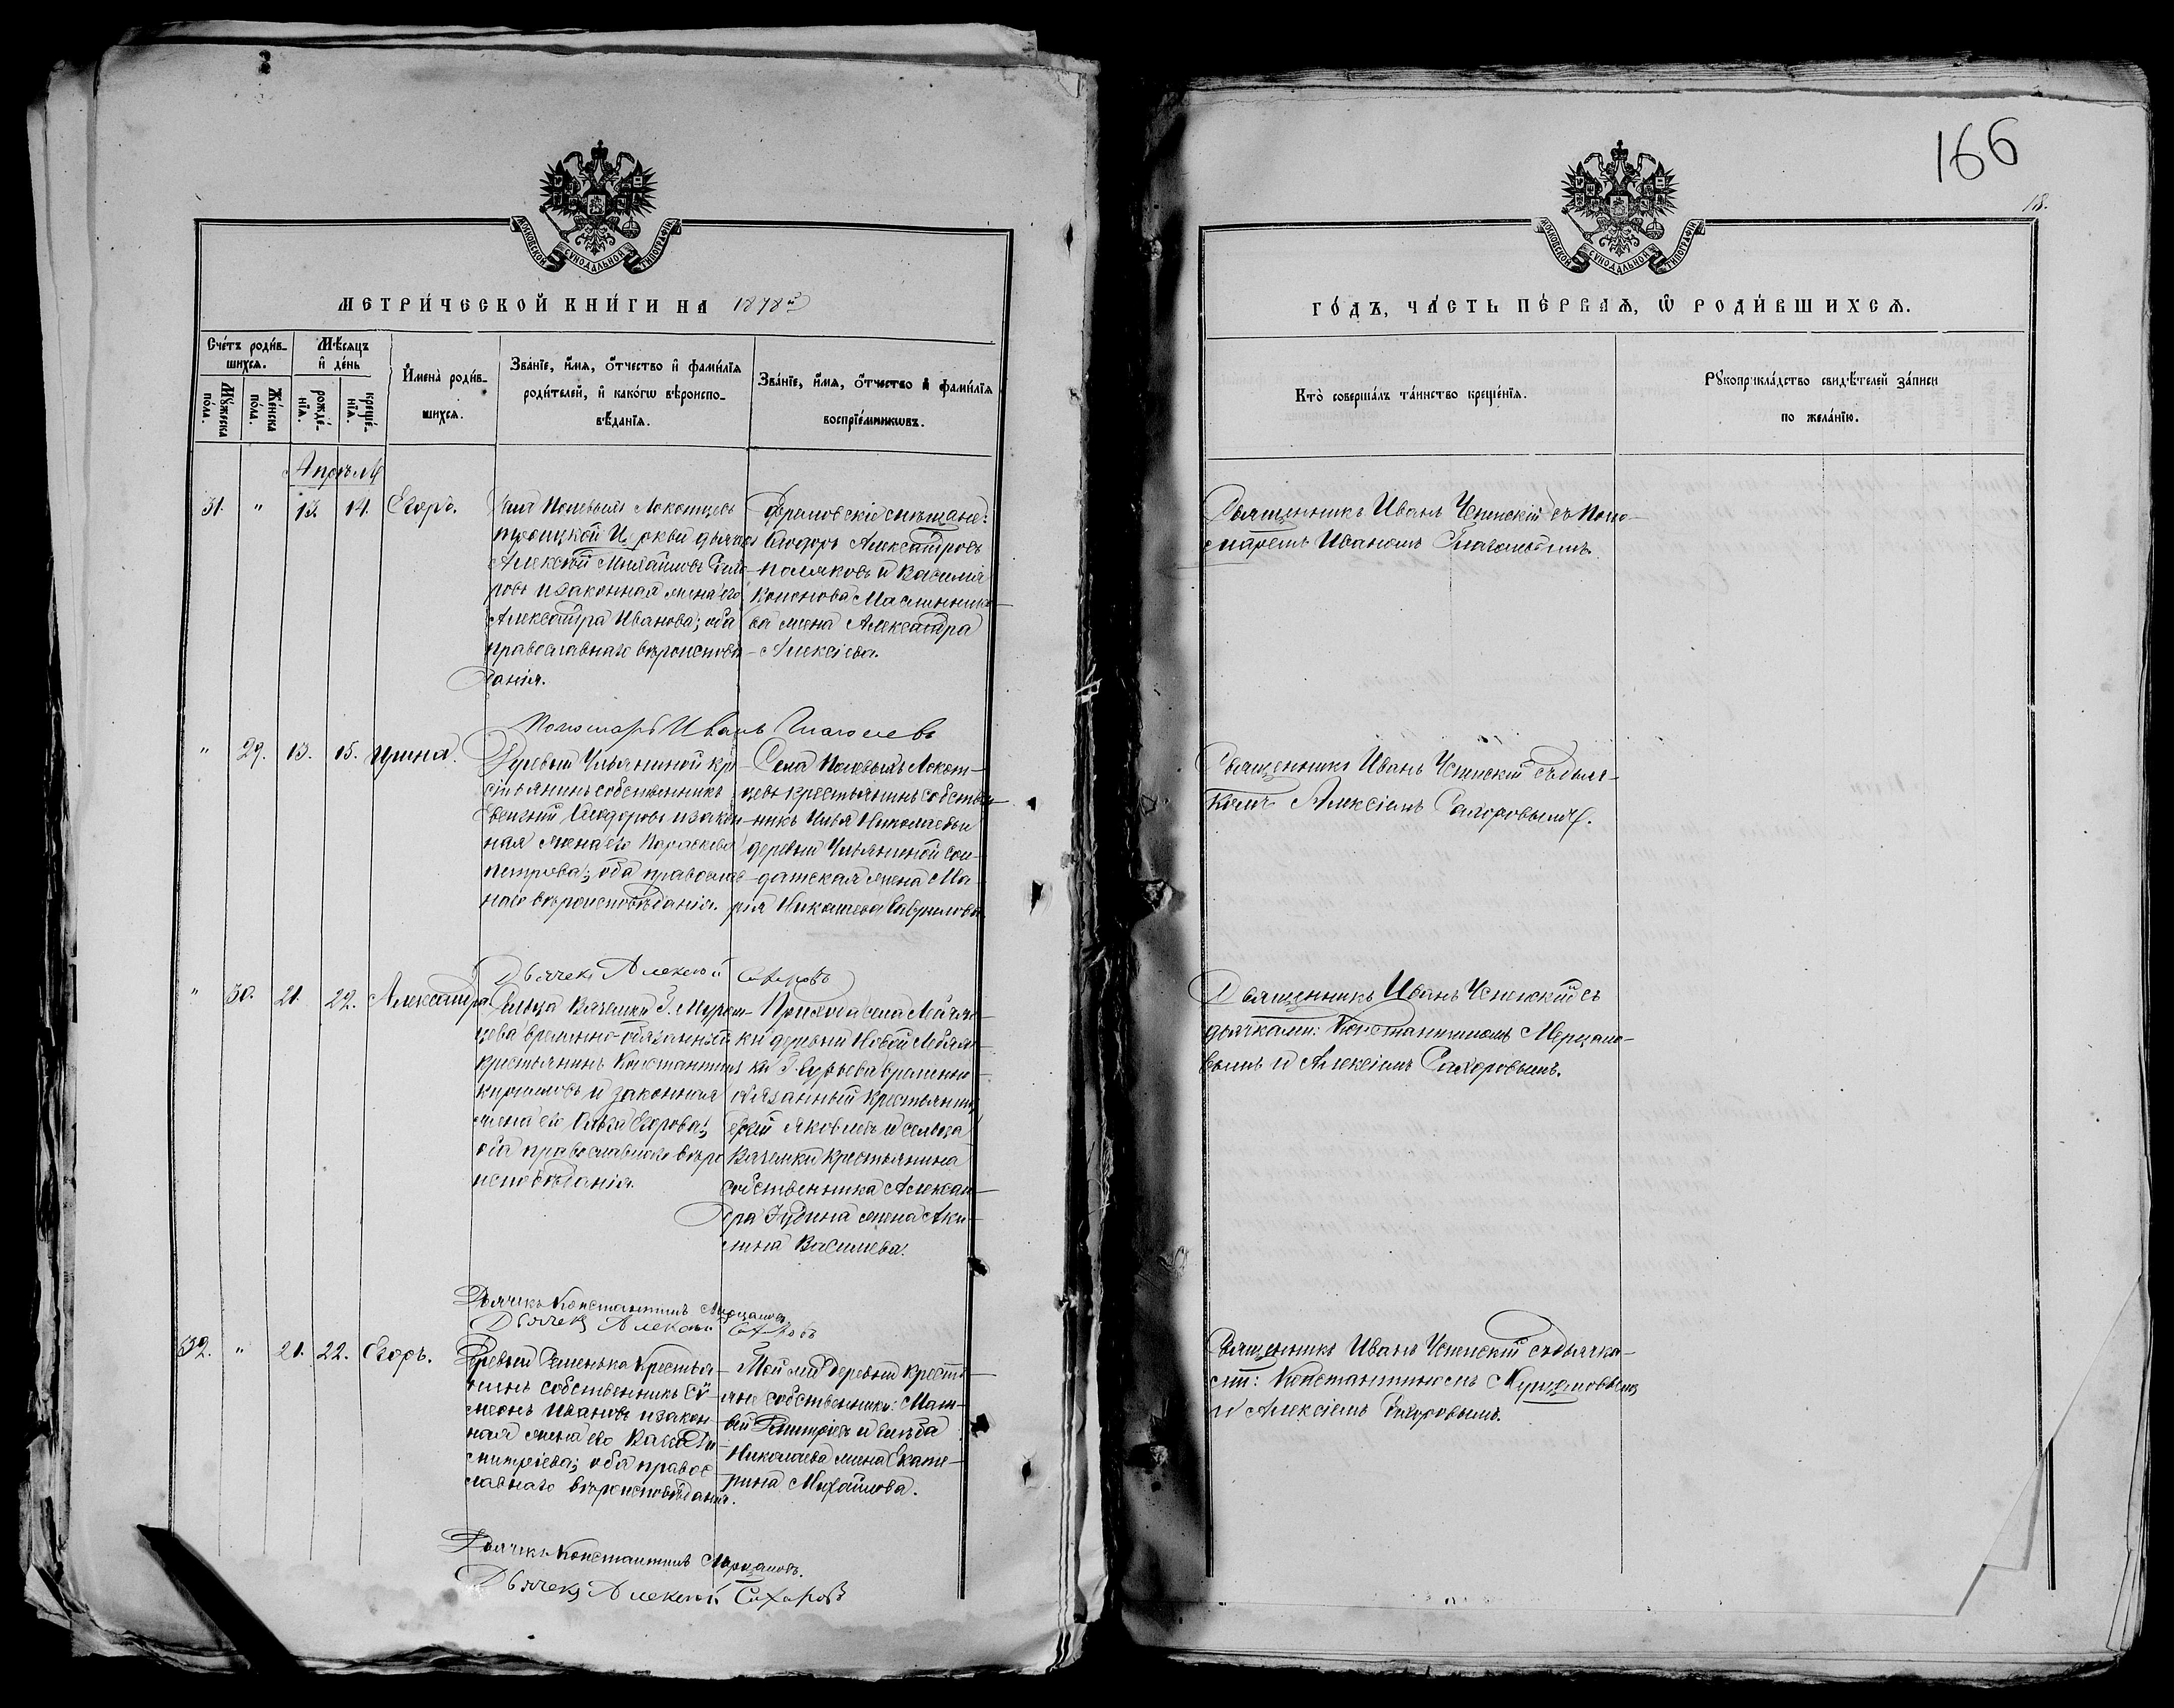 166
18.
МОСКОВСКОЙ СѴНОДАЛЬНОЙ ТИПОГРАФІИ
МЕТРИ́ЧЕСКОЙ КНИ́ГИ НА 1878й
Сче́тъ роди́в-
шихсѧ.
Мꙋ́жеска
по́ла.
Же́нска
по́ла.
Мѣ́сѧцъ
и҆ де́нь
рожде́-
нїѧ.
креще́-
нїѧ.
И҆мена̀ роди́в-
шихсѧ.
Зва́нїе, и҆́мѧ, ѻ҆́тчество и҆ фами́лїѧ
роди́телей, и҆ како́гѡ вѣ́роиспо-
вѣ́данїѧ.
Зва́нїе, и҆́мѧ, ѻ҆́тчество и҆ фами́лїѧ
воспрїе́мникѡвъ.
Апрѣль
31. " 13. 14. Егоръ.
Села Полевыхъ Локотцевъ
Троицкой Церкви дьячекъ
Алексѣй Михайловъ Сахо-
ровъ и законная жена его
Александра Иванова; оба
православнаго вѣроисповѣ-
данія.
Ефремовскіе мѣщане:
Ѳеодоръ Александровъ
Поляковъ и Василія
Кононова Масленнико-
ва жена Александра
Алексіева.
Пономарь Иванъ Глаголевъ
" 29. 13. 15. Ирина.
Деревни Ульяниной кре-
стьянинъ собственникъ
Евгеній Ѳеодоровъ и закон-
ная жена его Параскева
Петрова; оба православ-
наго вѣроисповѣданія.
Села Полевыхъ Локот-
цевъ крестьянинъ собствен-
никъ Илья Николаевъ и
деревни Ульяниной сол-
датская жена Ма-
рія Николаева Гаврилова
Дьячекъ Алексѣй Сахаровъ
" 30. 21. 22. Александра.
временно-обязанный
крестьянинъ Константинъ
и законная
жена его Ольга Егорова;
оба православнаго вѣро
исповѣданія.
деревни Новой
временно
обязанный крестьянинъ
Яковлевъ и сельца
Вяземки крестьянина
собственника Алексан-
дра Зудина жена Аку-
лина Васильева.
Дьячекъ Константинъ Мерцаловъ
Дьячекъ Алексѣй Сахаровъ
32. " 21. 22. Егоръ.
Деревни Семенька крестья-
нинъ собственникъ Сѵ-
меонъ Ивановъ и закон-
ная жена его Васса Ди-
митріева; оба правос-
лавнаго вѣроисповѣданія.
Той же деревни кресть-
яне собственники: Мат-
вей Димитріевъ и Глѣба
Николаева жена Екате-
рина Михайлова.
Дьячекъ Константинъ Мерцаловъ.
Дьячекъ Алексѣй Сахаровъ
МОСКОВСКОЙ СѴНОДАЛЬНОЙ ТИПОГРАФІИ
ГО́ДЪ, ЧА́СТЬ ПЕ́РВАѦ, Ѡ҆ РОДИ́ВШИХСѦ.
Кто̀ соверша́лъ та́инство креще́нїѧ.
Рꙋкоприкла́дство свидѣ́телей за́писи
по жела́нїю.
Священникъ Иванъ Успенскій съ Поно-
маремъ Иваномъ Глаголевымъ.
Священникъ Иванъ Успенскій съ дьяч-
комъ Алексіемъ Сахоровымъ.
Священникъ Иванъ Успенскій съ
дьячками: Константиномъ Мерцало-
вымъ и Алексіемъ Сахоровымъ.
Священникъ Иванъ Успенскій съ дьячка-
ми: Константиномъ Мерцаловымъ
и Алексіемъ Сахоровымъ.